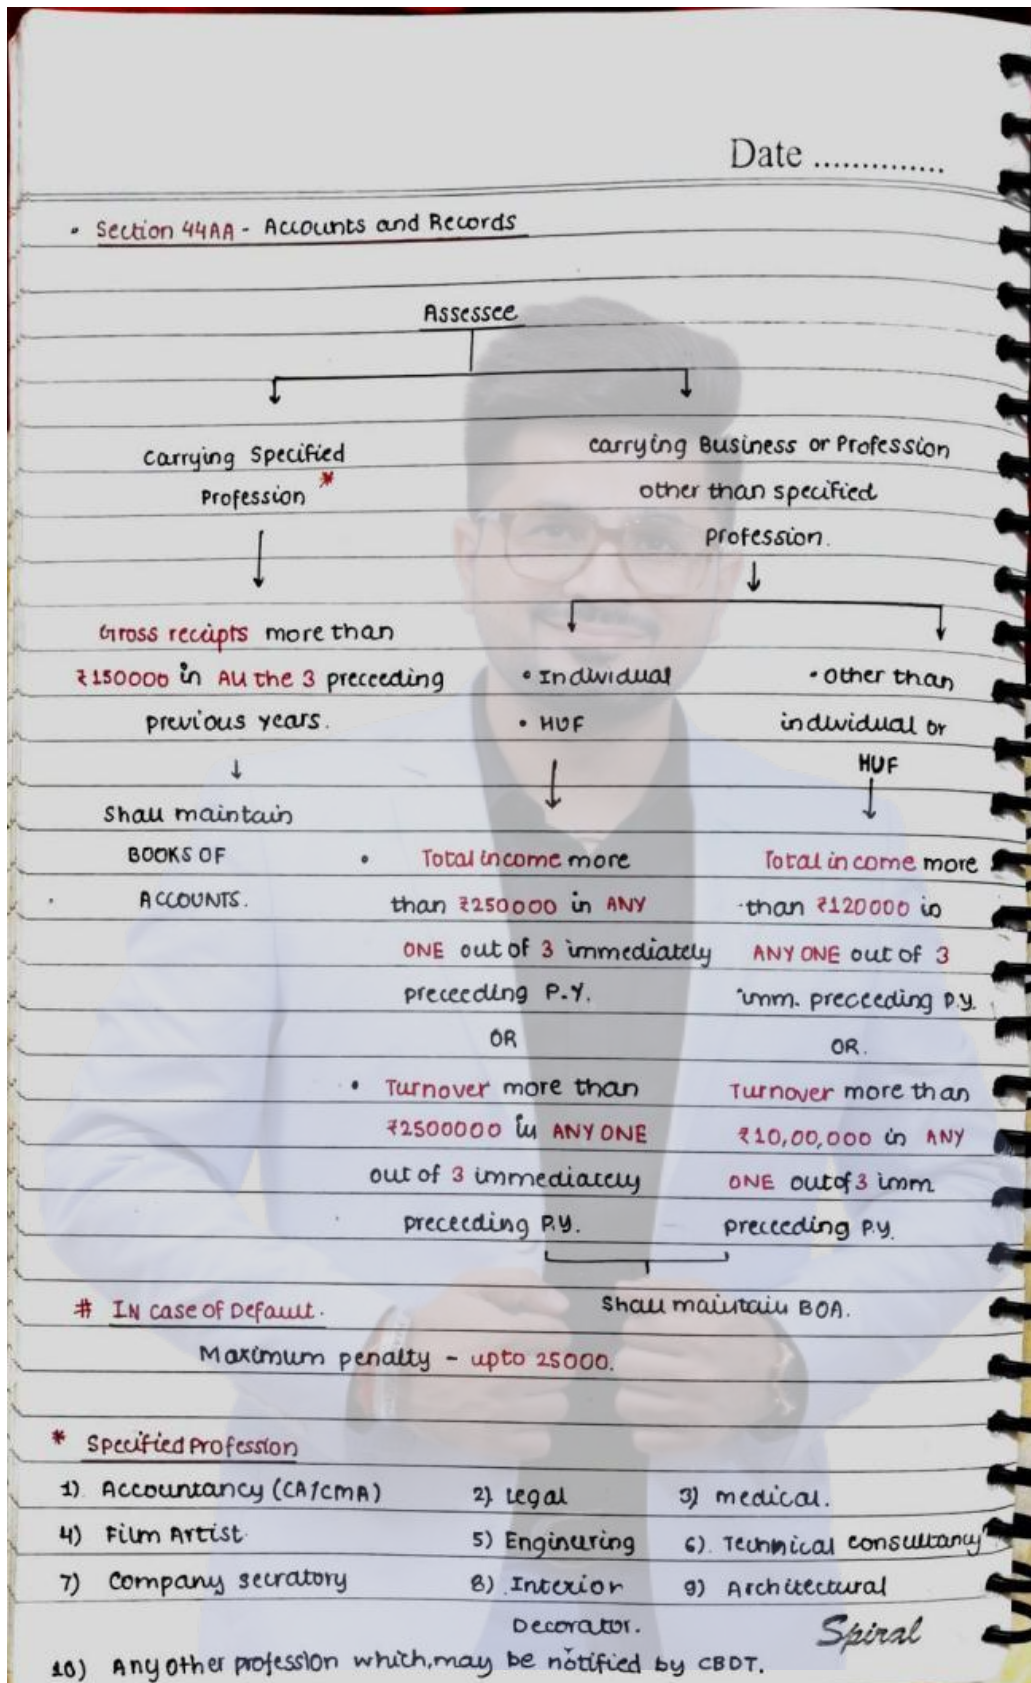 Date ..............
• Section 44AA - Accounts and Records
Assessee
Carrying Specified
Profession *
carrying Business or Profession
other than specified
Profession.
Gross receipts more than
₹150000 in All the 3 preceeding
previous years.
Shall maintain
BOOKS OF
ACCOUNTS.
• Individual
• HUF
• Total income more
than ₹250000 in ANY
ONE out of 3 immediately
preceeding P.Y.
OR
• Turnover more than
₹2500000 in ANY ONE
out of 3 immediately
preceeding P.Y.
• Other than
individual or
HUF
Total income more
than ₹120000 in
ANY ONE out of 3
imm. preceeding P.Y.
OR.
Turnover more than
₹10,00,000 in ANY
ONE out of 3 imm
preceeding P.Y.
Shall maintain BOA.
# IN case of Default.
Maximum penalty - upto 25000.
* Specified Profession
1) Accountancy (CA/CMA) 2) Legal 3) medical.
4) Film Artist 5) Enginering 6). Technical consultancy
7) Company secratory 8). Interior 9) Architectural
Decorator.
10) Any other profession which, may be notified by CBDT.
Spiral